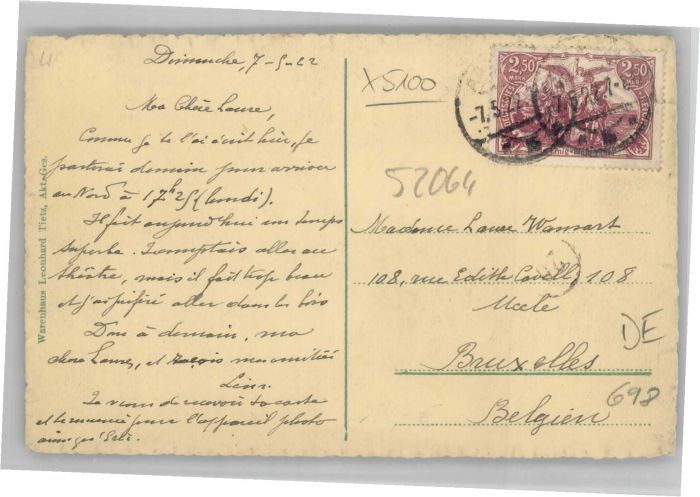 Dimanche, 7-5-22
Ma Chère Laure,
Comme je te l'ai écrit hier, je
partirai demain pour arriver
au Nord à 17h25 (lundi).
Il fait aujourd'hui un temps
superbe. Je comptais aller au
théâtre, mais il fait trop beau
et j'ai préféré aller dans les bois
Donc à demain, ma
chère Laure, et reçois mes amitiés
Léon.
Je viens de recevoir ta carte
et te remercie pour l'appareil photo
Warenhaus Leonhard Tietz, Akt.-Ges.
X5100
2,50 MARK
2,50 MARK
-7.5.22
52064
Madame Laure Wansart
108, rue Edith Cavell, 108
Uccle
Bruxelles
Belgien
DE
698